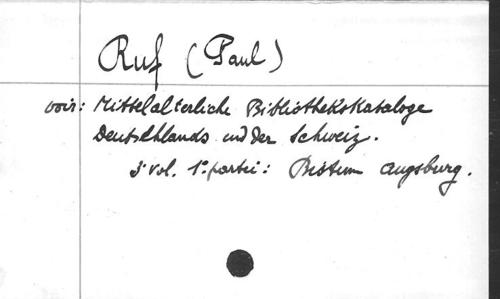 Ruf (Paul)
voir: Mittelalterliche Bibliothekskataloge
Deutschlands und der Schweiz.
3e vol. 1e partie: Bistum Augsburg.